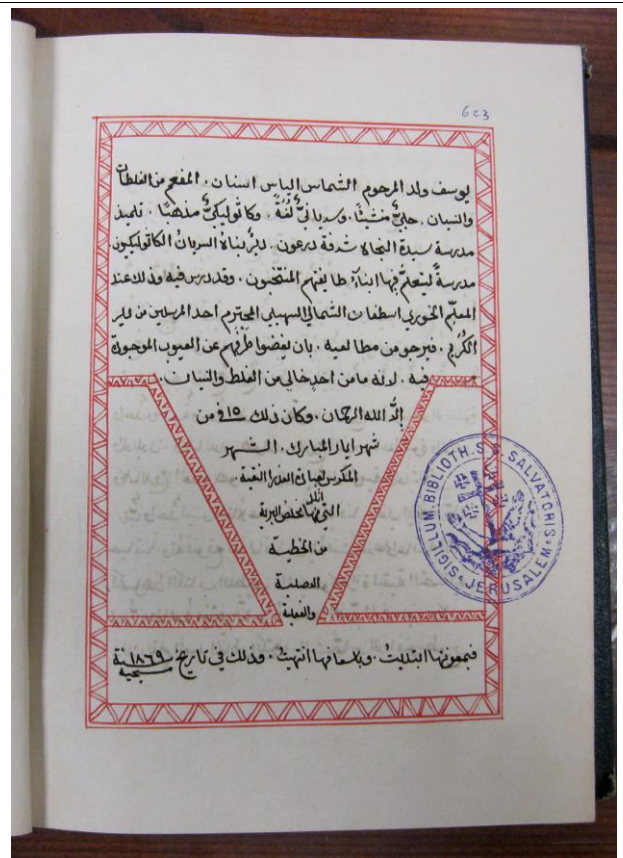 623
يوسف ولد المرحوم الشماس الياس اسنان. المفعم من الغلطات
والنسيان. حلبيٌّ منشئًا. وسريانيٌّ لُغةً. وكاثوليكيٌّ مذهبًا. تلميذ
مدرسة سيدة النجاة شرفة درعون. ديرُ بناهُ السريان الكاثوليكيون.
مدرسةً ليتعلم فيها ابنآء طايفتهم المنتخبون. وقد درس فيه وذلك عند
المعلّم الخوري اسطفان الشمالي السهيلي المحترم احد المرسلين من دير
الكُرَيم. فيرجو من مطالعيه. بان يغضوا طَرْفهم عن العيوب الموجودة
فيه. لانه ما من احدٍ خالي من الغلط والنسيان.
إلَّا الله الرحمان. وكان ذلك في ١٥ من
شهر ايار المبارك. الشهر
المكرس لعبادة العذرا النقية
التي ابنها مخلص البرية
من الخطية
الاصلية
والفعلية
فبمعونتها ابتديتُ. وباسعافها انتهيتُ. وذلك في تاريخ سنة ١٨٦٩
مسيحية
SIGILLUM BIBLIOTH. S. S. SALVATORIS JERUSALEM